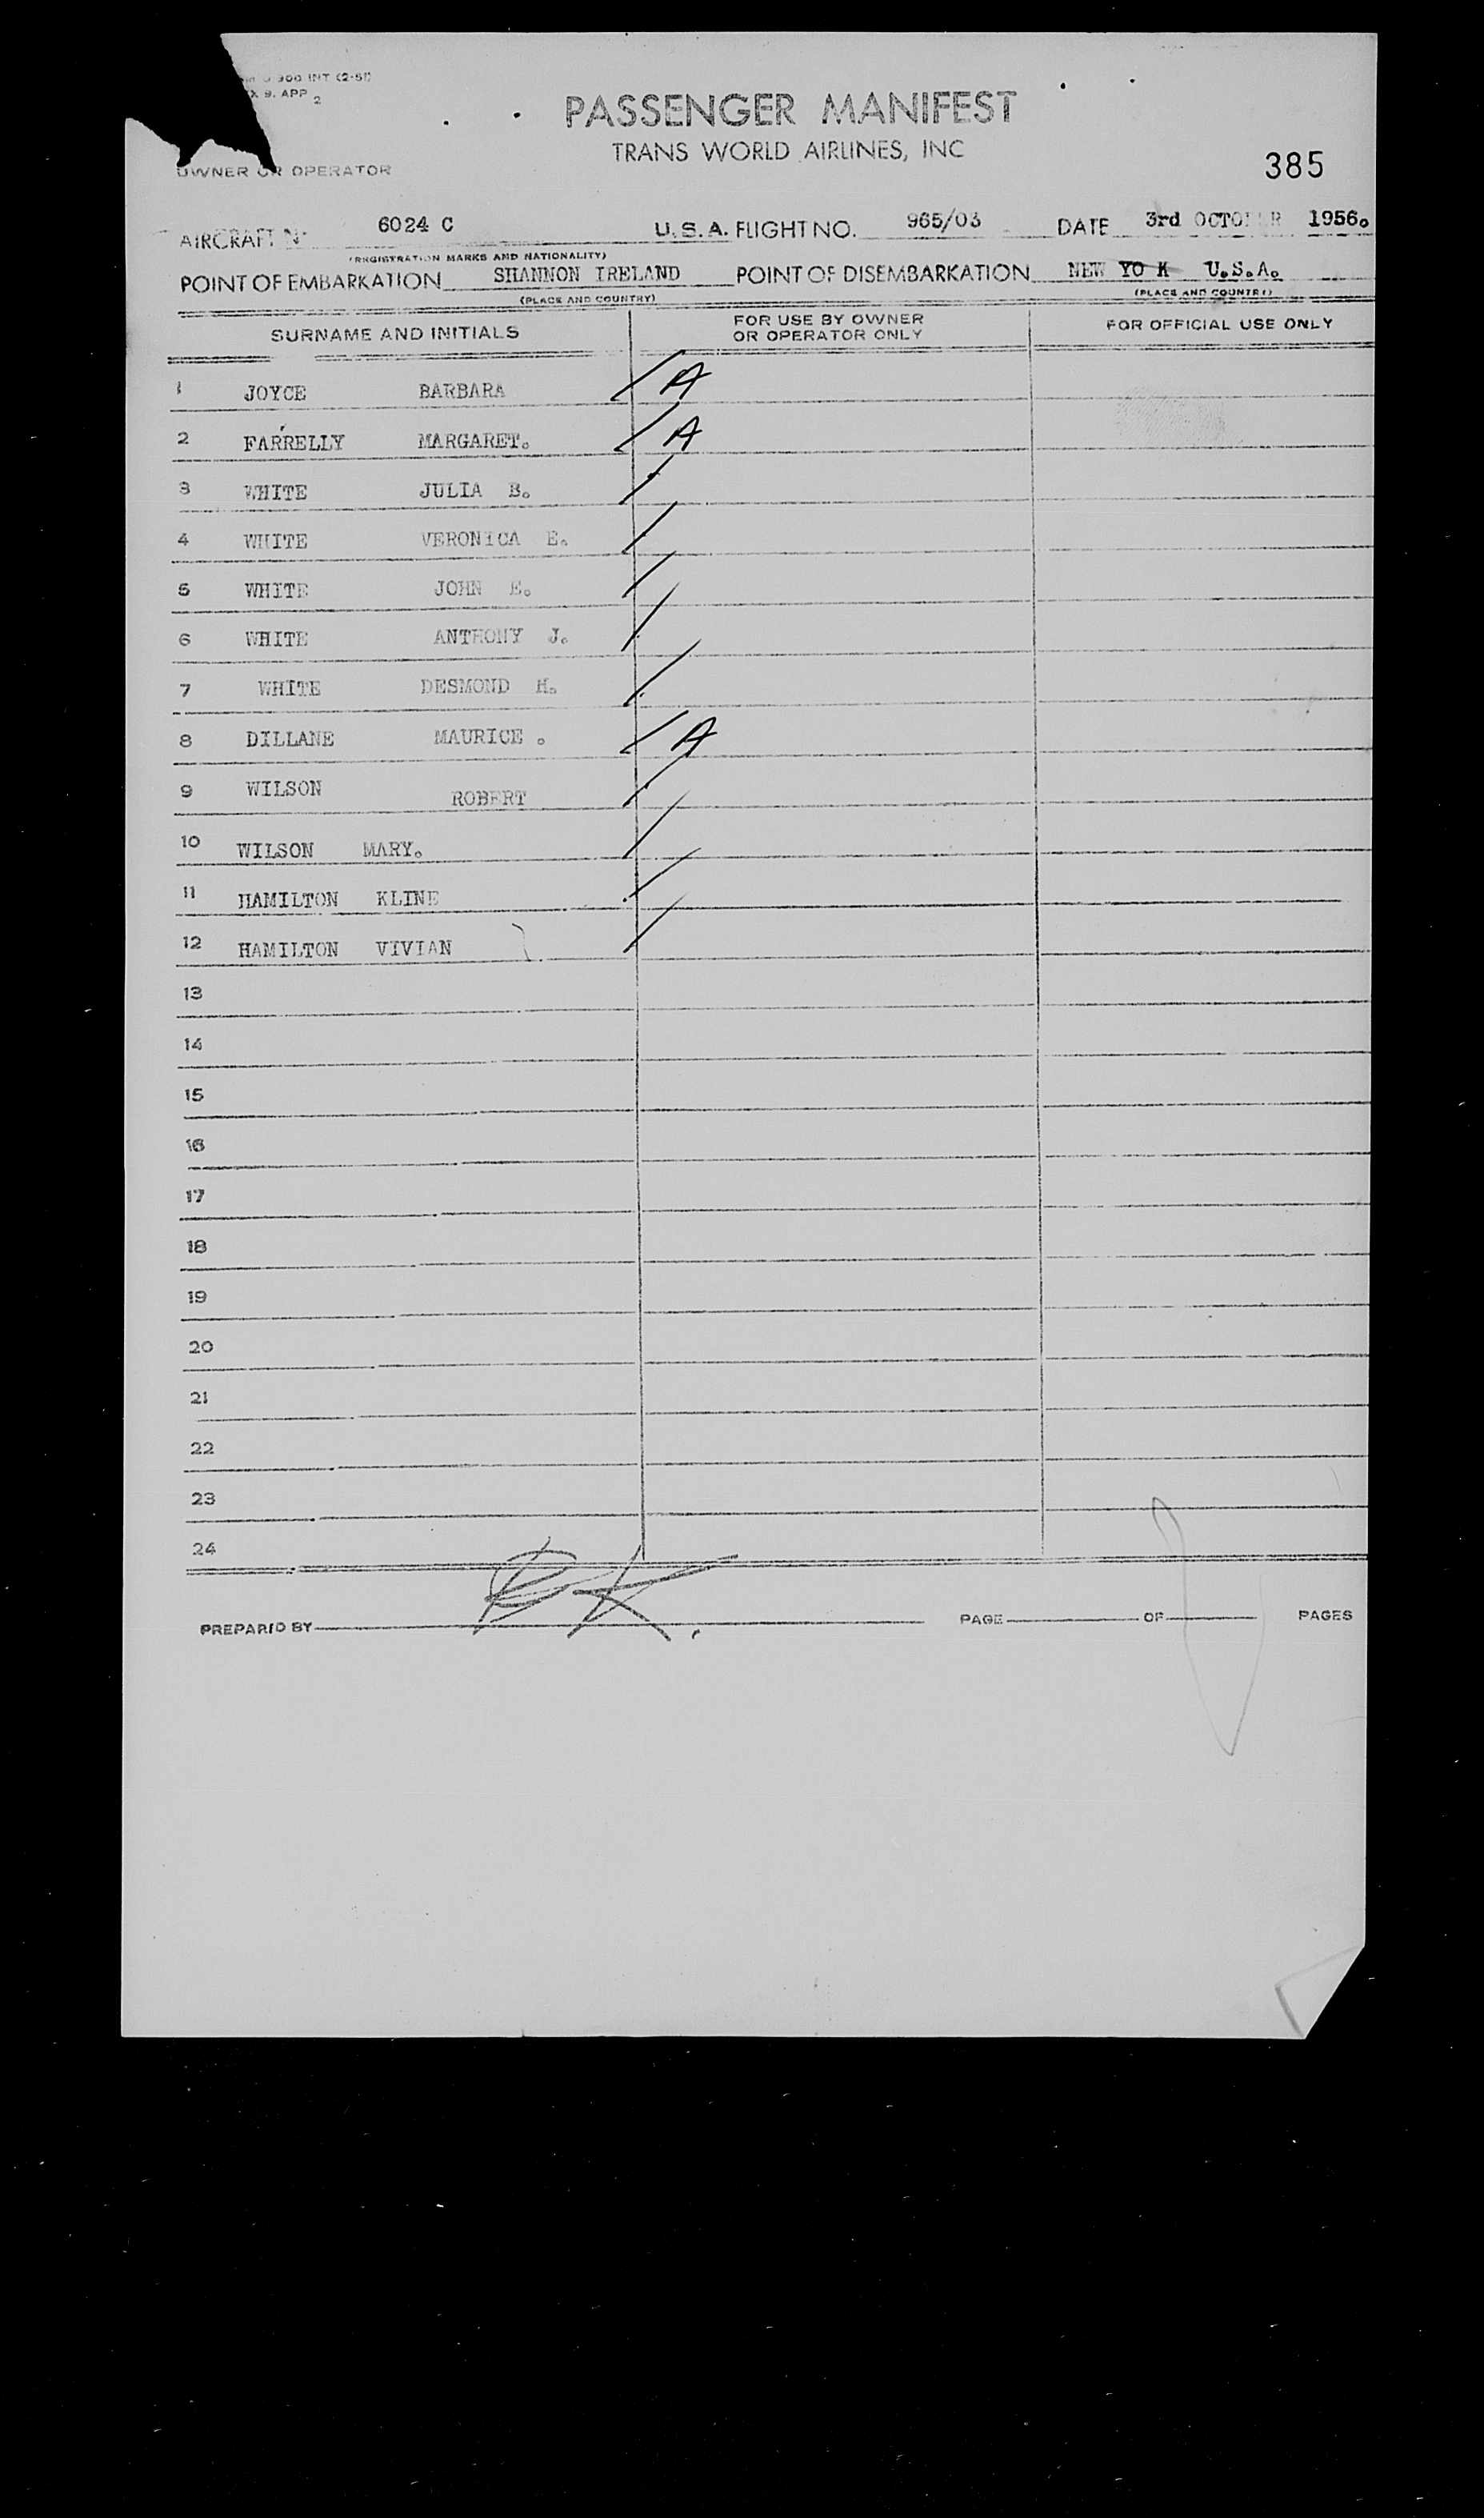 900 INT (2-51)
9. APP 2
PASSENGER MANIFEST
TRANS WORLD AIRLINES, INC
385
OWNER OR OPERATOR
AIRCRAFT Nº 6024 C U.S.A. FLIGHT NO. 965/03 DATE 3rd OCTOBER 1956.
(REGISTRATION MARKS AND NATIONALITY)
POINT OF EMBARKATION SHANNON IRELAND POINT OF DISEMBARKATION NEW YO K U.S.A.
(PLACE AND COUNTRY) (PLACE AND COUNTRY)
SURNAME AND INITIALS FOR USE BY OWNER OR OPERATOR ONLY FOR OFFICIAL USE ONLY
1 JOYCE BARBARA / A
2 FARRELLY MARGARET. / A
3 WHITE JULIA B. /
4 WHITE VERONICA E. /
5 WHITE JOHN E. /
6 WHITE ANTHONY J. /
7 WHITE DESMOND H. /
8 DILLANE MAURICE . / A
9 WILSON ROBERT /
10 WILSON MARY. /
11 HAMILTON KLINE /
12 HAMILTON VIVIAN /
13
14
15
16
17
18
19
20
21
22
23
24
PREPARED BY PAGE OF PAGES